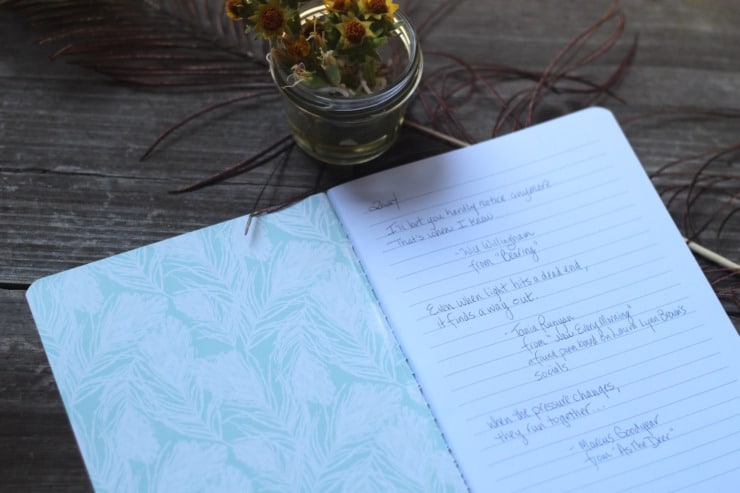 I'll bet you hardly notice anymore
That's when I know
- Will Willingham
from "Bearing"
Even when light hits a dead end,
it finds a way out.
- Tania Runyan
from Every Morning"
found poem based on Laura Lynn Brown's
socials
when the pressure changes,
they run together...
- Marcus Goodyear
from "As The Deer"